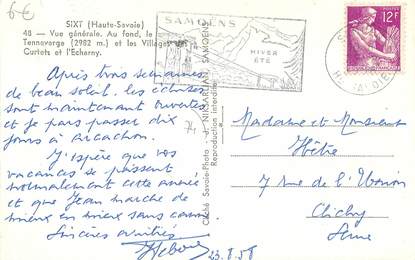 6€
SIXT (Haute-Savoie)
48 — Vue générale. Au fond, le
Tenneverge (2982 m.) et les Villages
Curtets et l'Echarny.
SAMOËNS
HIVER
ÉTÉ
12F
Après trois semaines
de beau soleil, les écluses
sont maintenant ouvertes
et je pars passer dix
jours à Arcachon.
J'espère que vos
vacances se passent
normalement cette année,
et que Jean marche de
mieux en mieux sans canne.
Sincères amitiés
23.8.58
Cliché Savoie-Photo - J.
Reproduction interdite
74
Madame et Monsieur
Hêtre
7 rue de l'Union
Clichy
Seine